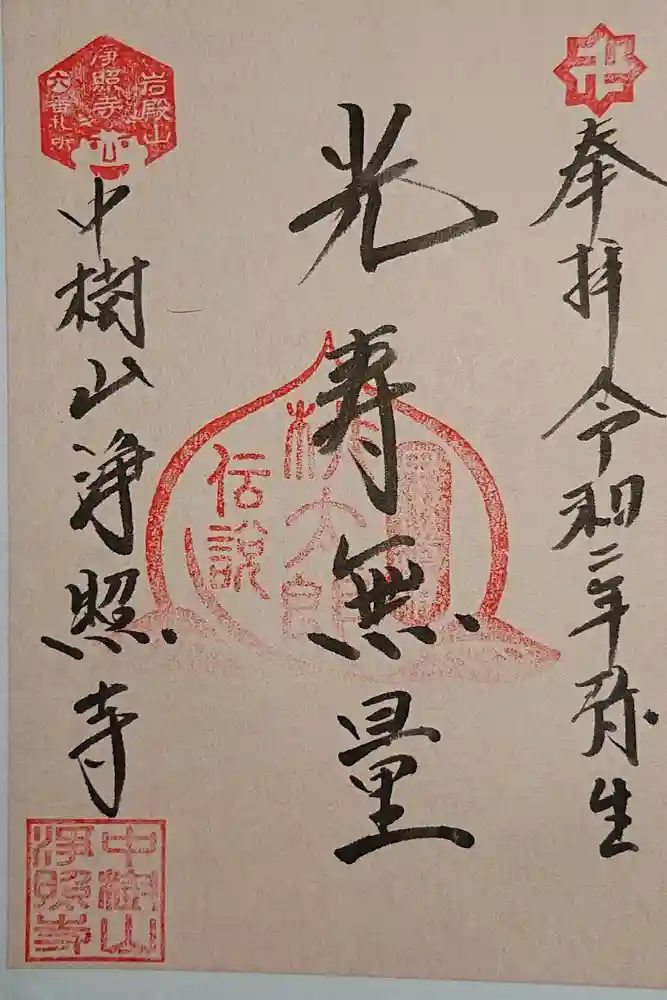 卍
奉拝令和二年弥生
光寿無量
桃太郎
伝説
岩殿山
浄照寺
六番札所
中樹山浄照寺
中樹山
浄照寺